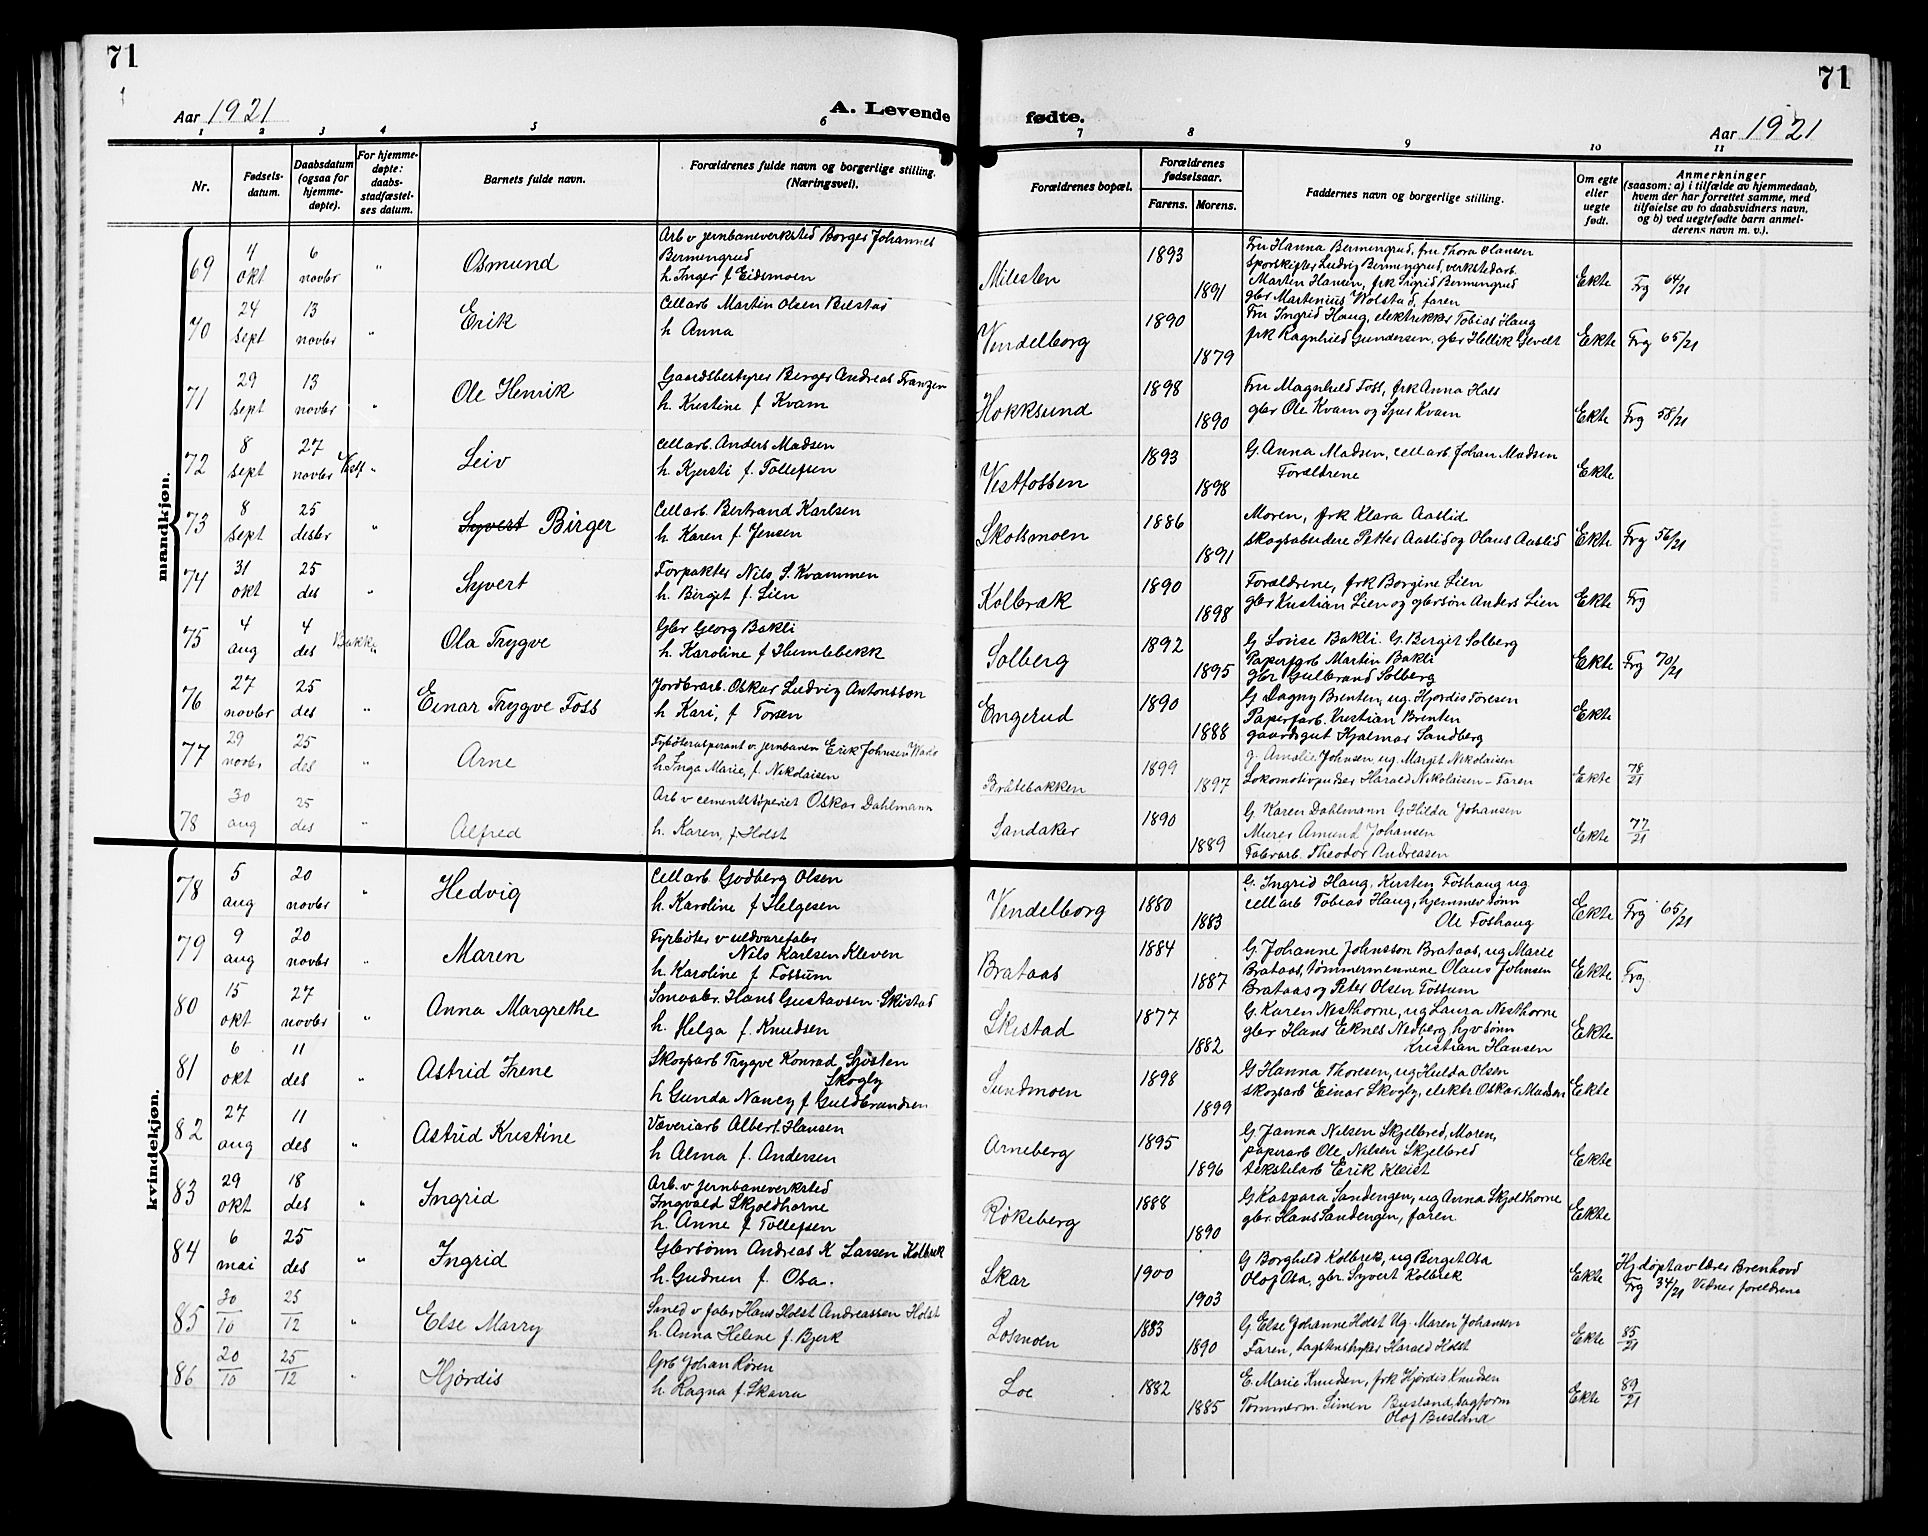 71
71
Aar 1921
A. Levende
fødte.
Aar 1921
1 2 3 4 5 6 7 8 9 10 11
Nr.
Fødsels-
datum.
Daabsdatum
(ogsaa for
hjemme-
døpte).
For hjemme-
døpte:
daabs-
stadfæstel-
ses datum.
Barnets fulde navn.
Forældrenes fulde navn og borgerlige stilling.
(Næringsvei).
Forældrenes bopæl.
Forældrenes
fødselsaar.
Farens. Morens.
Faddernes navn og borgerlige stilling.
Om egte
eller
uegte
født.
Anmerkninger
(saasom: a) i tilfælde av hjemmedaab,
hvem der har forrettet samme, med
tilføielse av to daabsvidners navn,
og b) ved uegtefødte barn anmel-
derens navn m. v.).
mandkjøn.
69
4
okt
6
novbr
"
Osmund
Arb v jernbaneverksted Borger Johannes
Bermingrud
h. Inger f Eidsmoen
Milesten
1893
1891
Fru Hanna Bermingrud, fru Thora Hansen
Sporskifter Ludvig Bermingrud, verkstedarb.
Marten Hansen, frk Sigrid Bermingrud
gbr Martenius Wolstad, faren
Ekte
Frg 64/21
70
24
sept
13
novbr
"
Erik
Cellarb Martin Olsen
h Anna
Vendelborg
1890
1879
Fru Ingrid Haug, elektrikker Tobias Haug
frk Ragnhild Gundersen, gbr Hellik
Ekte
Frg 65/21
71
29
sept
13
novbr
"
Ole Henrik
Gaardsbestyrer Berger Andreas Franzen
h. Kristine f Kvam
Hokksund
1898
1890
Fru Magnhild Foss, frk Anna Hals
gbr Ole Kvam og Kvam
Ekte
Frg 58/21
72
8
sept
27
novbr
Vestf "
Leiv
Cellarb. Anders Madsen
h. Kjersti f. Tollefsen
Vestfossen
1893
1898
G. Anna Madsen, cellarb Johan Madsen
Forældrene
Ekte
73
8
sept
25
desbr
"
Syvert Birger
Cellarb. Bertrand Karlsen
h. Karen f Jensen
Skotsmoen
1886
1891
Moren, frk Klara Aaslid
skogsarbeidere Petter Aaslid og Olaus Aaslid
Ekte
Frg 56/21
74
31
okt
25
des
"
Syvert
Forpakter Nils S. Kvammen
h. Birget f. Lien
Kolbræk
1890
1898
Forældrene, frk Borgine Lien
gbr Kristian Lien og gbrsøn Anders Lien
Ekte
Frg
75
4
aug
4
des
Bakke "
Ola Trygve
Gbr Georg Bakli
h. Karoline f Humlebekk
Solberg
1892
1895
G. Louise Bakli. G. Berget Solberg
Paperfarb Martin Bakli
gbr Gulbrand Solberg
Ekte
Frg 70/21
76
27
novbr
25
des
"
Einar Trygve Foss
Jordbrarb. Oskar Ludvig Antonsson
h Kari, f Torsen
Engerud
1890
1888
G Dagny Brenten, ug. Hjordis Foresen
Paperfarb. Kristian Brenten
gaardsgut Hjalmar Sandberg
Ekte
77
29
novbr
25
des
"
Arne
Fyrbøteraspirant v. jernbanen Erik Johnsen
h. Inga Marie, f. Nikolaisen
Bråtebakken
1899
1897
g. Amalie Johnsen, ug. Margit Nikolaisen
Lokomotivpudser Harald Nikolaisen – Faren
Ekte
78/21
78
30
aug
25
des
"
Alfred
Arb v cementstøperiet Oskar Dahlmann
h. Karen, f Holst
Sandaker
1890
1889
G. Karen Dahlmann G Hilda Johansen
Murer Amund Johansen
Fabrarb. Theodor Andreasen
Ekte
77/21
kvindekjøn.
78
5
aug
20
novbr
"
Hedvig
Cellarb Godberg Olsen
h. Karoline f Helgesen
Vendelborg
1880
1883
G. Ingrid Haug, Kirsten Foshaug ug
cellarb Tobias Haug, hjemmev sønn
Ole Foshaug
Ekte
Frg 65/21
79
9
aug
20
novbr
"
Maren
Fyrbøter v uldvarefabr
Nils Karlsen Kleven
h. Karoline f Fossum
Brataas
1884
1887
G. Johanne Johnsson Brataas, ug Marie
Brataas, tømmermennene Olaus Johnsen
Brataas og Peter Olsen Fossum
Ekte
Frg.
80
15
okt
27
novbr
"
Anna Margrethe
Smaabr. Hans Gustavsen Skistad
h. Helga f. Knudsen
Skistad
1877
1882
G. Karen Nesthorne, ug Laura Nesthorne
gbr Hans Eknes Nedberg, hjv sønn
Kristian Hansen
Ekte
81
6
okt
11
des
"
Astrid Irene
Skogsarb Trygve Konrad Sjøsten
Skogly
h Gunda Nancy f Guldbrandsen
Sundmoen
1898
1899
G Hanna Thoresen, ug Hulda Olsen
skogsarb Einar Skogly, elektr Oskar Madsen
Ekte
82
27
aug
11
des
"
Astrid Kristine
Væveriarb Albert Hansen
h Alma f. Andersen
Arneberg
1895
1896
G. Janna Nilsen Skjelbred, Moren,
paperarb Ole Nilsen Skjelbred
tekstilarb Erik Kleist
Ekte
83
29
okt
18
des
"
Ingrid
Arb. v jernbaneverksted
Ingvald Skjoldhorne
h. Anne f Tollefsen
Røkeberg
1888
1890
G Kaspara Sandengen, ug Anna Skjoldhorne
gbr. Hans Sandengen, faren
Ekte
84
6
mai
25
des
"
Ingrid
Gbrsønn Andreas K Larsen Kolbrek
h. Gudrun f. Osa.
Skar
1900
1903
G Borghild Kolbrek, ug Berget Osa
Olof Osa, gbr. Syvert Kolbrek
Ekte
Hjdøpt av lærer Brenhovd
Frg 34/21 Vidner foreldrene
85
30/10
25/12
"
Else Marry
Smed v fabr Hans Holst Andreassen Holst
h. Anna Helene f. Bjerk
Losmoen
1883
1890
G. Else Johanne Holst Ug. Maren Johansen
Faren, Harald Holst
Ekte
85/21
86
20/10
25/12
"
Hjørdis
Grb Johan Røren
h. Ragna f. Skarra
Loe
1882
1885
E. Marie Knudsen, frk Hjørdis Knudsen
Tømmerm. Simen Busland, sagform
Olof Busland
Ekte
89/21